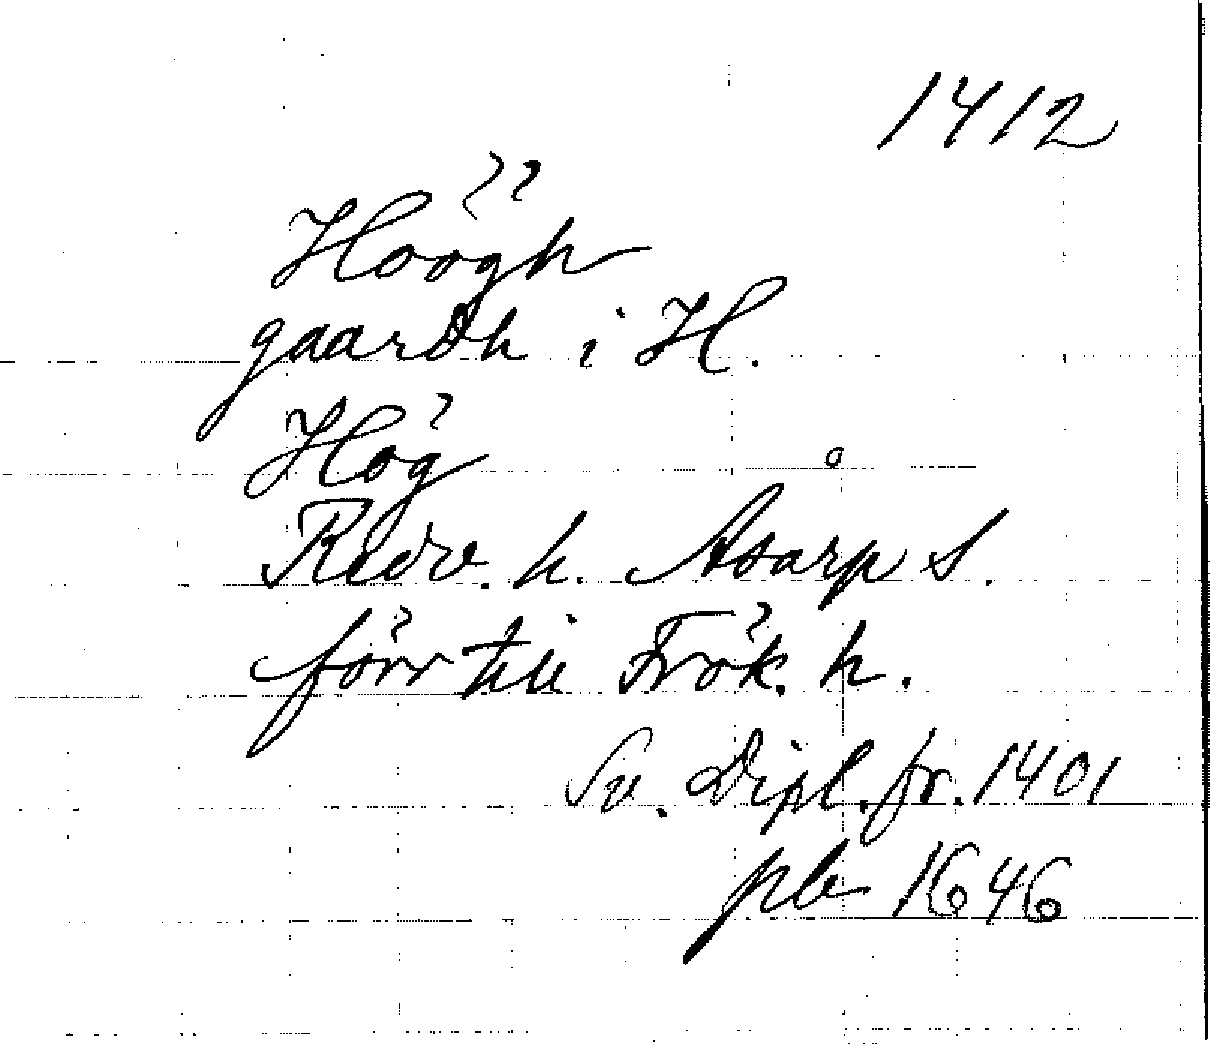 1412
Höögh
gaardh i H.
Hög
Redv. h. Åsarp s.
förr till Frök. h.
Sv. Dipl. fr. 1401
pb 1646